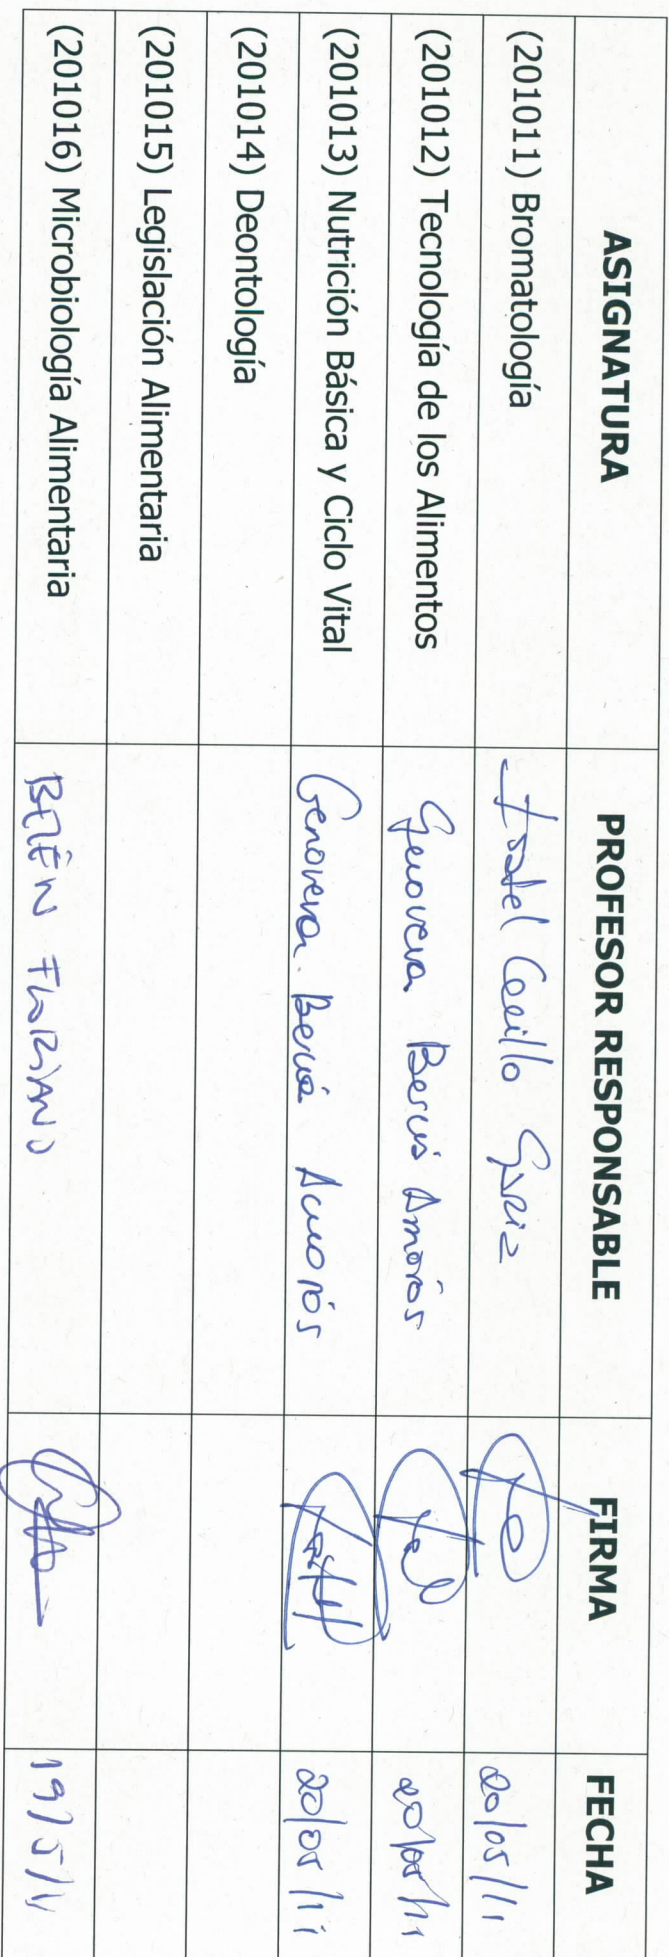 ASIGNATURA PROFESOR RESPONSABLE FIRMA FECHA
(201011) Bromatología Isabel 20/05/11
(201012) Tecnología de los Alimentos Genoveva Berná Amorós 20/05/11
(201013) Nutrición Básica y Ciclo Vital Genoveva Berná Amorós 20/05/11
(201014) Deontología
(201015) Legislación Alimentaria
(201016) Microbiología Alimentaria BELÉN FLORIANO 19/5/11